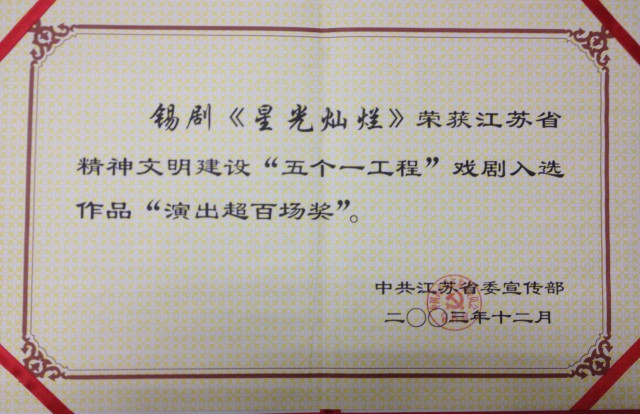 锡剧《星光灿烂》荣获江苏省
精神文明建设“五个一工程”戏剧入选
作品“演出超百场奖”。
中共江苏省委宣传部
二〇〇三年十二月